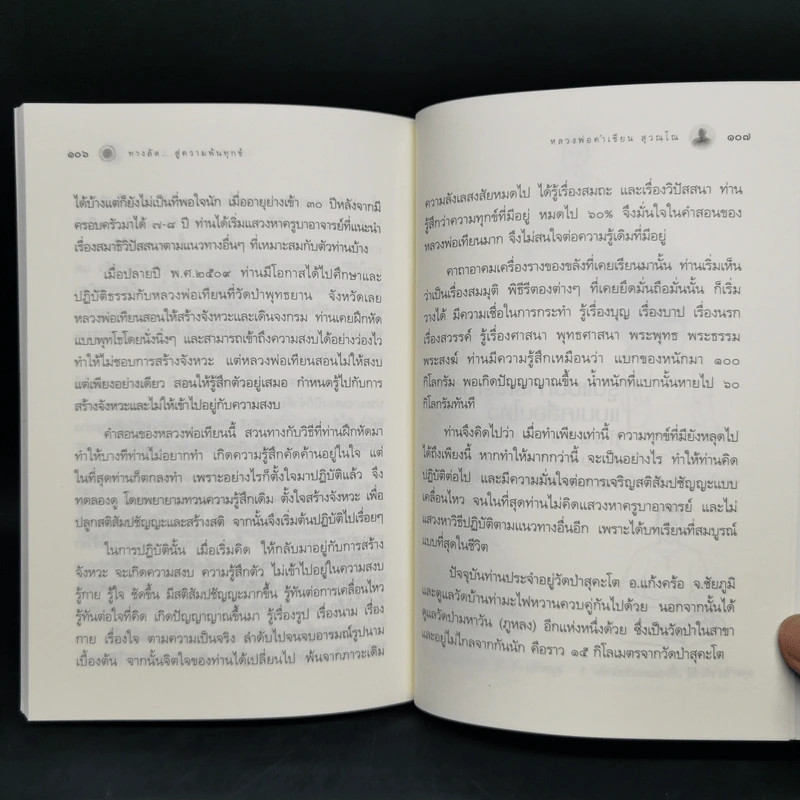 ๑๐๖ ทางลัด... สู่ความพ้นทุกข์
ได้บ้างแต่ก็ยังไม่เป็นที่พอใจนัก เมื่ออายุย่างเข้า ๓๐ ปีหลังจากมี
ครอบครัวมาได้ ๗-๘ ปี ท่านได้เริ่มแสวงหาครูบาอาจารย์ที่แนะนำ
เรื่องสมาธิวิปัสสนาตามแนวทางอื่นๆ ที่เหมาะสมกับตัวท่านบ้าง
เมื่อปลายปี พ.ศ.๒๕๐๙ ท่านมีโอกาสได้ไปศึกษาและ
ปฏิบัติธรรมกับหลวงพ่อเทียนที่วัดป่าพุทธยาน จังหวัดเลย
หลวงพ่อเทียนสอนให้สร้างจังหวะและเดินจงกรม ท่านเคยฝึกหัด
แบบพุทโธโดยนั่งนิ่งๆ และสามารถเข้าถึงความสงบได้อย่างว่องไว
ทำให้ไม่ชอบการสร้างจังหวะ แต่หลวงพ่อเทียนสอนไม่ให้สงบ
แต่เพียงอย่างเดียว สอนให้รู้สึกตัวอยู่เสมอ กำหนดรู้ไปกับการ
สร้างจังหวะและไม่ให้เข้าไปอยู่กับความสงบ
คำสอนของหลวงพ่อเทียนนี้ สวนทางกับวิธีที่ท่านฝึกหัดมา
ทำให้บางทีท่านไม่อยากทำ เกิดความรู้สึกคัดค้านอยู่ในใจ แต่
ในที่สุดท่านก็ตกลงทำ เพราะอย่างไรก็ตั้งใจมาปฏิบัติแล้ว จึง
ทดลองดู โดยพยายามทวนความรู้สึกเดิม ตั้งใจสร้างจังหวะ เพื่อ
ปลูกสติสัมปชัญญะและสร้างสติ จากนั้นจึงเริ่มต้นปฏิบัติไปเรื่อยๆ
ในการปฏิบัตินั้น เมื่อเริ่มคิด ให้กลับมาอยู่กับการสร้าง
จังหวะ จะเกิดความสงบ ความรู้สึกตัว ไม่เข้าไปอยู่ในความสงบ
รู้กาย รู้ใจ ชัดขึ้น มีสติสัมปชัญญะมากขึ้น รู้ทันต่อการเคลื่อนไหว
รู้ทันต่อใจที่คิด เกิดปัญญาญาณขึ้นมา รู้เรื่องรูป เรื่องนาม เรื่อง
กาย เรื่องใจ ตามความเป็นจริง ลำดับไปจนจบอารมณ์รูปนาม
เบื้องต้น จากนั้นจิตใจของท่านได้เปลี่ยนไป พ้นจากภาวะเดิม
หลวงพ่อคำเขียน สุวณฺโณ ๑๐๗
ความลังเลสงสัยหมดไป ได้รู้เรื่องสมถะ และเรื่องวิปัสสนา ท่าน
รู้สึกว่าความทุกข์ที่มีอยู่ หมดไป ๖๐% จึงมั่นใจในคำสอนของ
หลวงพ่อเทียนมาก จึงไม่สนใจต่อความรู้เดิมที่มีอยู่
คาถาอาคมเครื่องรางของขลังที่เคยเรียนมานั้น ท่านเริ่มเห็น
ว่าเป็นเรื่องสมมุติ พิธีรีตองต่างๆ ที่เคยยึดมั่นถือมั่นนั้น ก็เริ่ม
วางได้ มีความเชื่อในการกระทำ รู้เรื่องบุญ เรื่องบาป เรื่องนรก
เรื่องสวรรค์ รู้เรื่องศาสนา พุทธศาสนา พระพุทธ พระธรรม
พระสงฆ์ ท่านมีความรู้สึกเหมือนว่า แบกของหนักมา ๑๐๐
กิโลกรัม พอเกิดปัญญาญาณขึ้น น้ำหนักที่แบกนั้นหายไป ๖๐
กิโลกรัมทันที
ท่านจึงคิดไปว่า เมื่อทำเพียงเท่านี้ ความทุกข์ที่มียังหลุดไป
ได้ถึงเพียงนี้ หากทำให้มากกว่านี้ จะเป็นอย่างไร ทำให้ท่าน
ปฏิบัติต่อไป และมีความมั่นใจต่อการเจริญสติสัมปชัญญะแบบ
เคลื่อนไหว จนในที่สุดท่านไม่คิดแสวงหาครูบาอาจารย์ และไม่
แสวงหาวิธีปฏิบัติตามแนวทางอื่นอีก เพราะได้บทเรียนที่สมบูรณ์
แบบที่สุดในชีวิต
ปัจจุบันท่านประจำอยู่วัดป่าสุคะโต อ.แก้งคร้อ จ.ชัยภูมิ
และดูแลวัดบ้านท่ามะไฟหวานควบคู่กันไปด้วย นอกจากนั้นได้
ดูแลวัดป่ามหาวัน (ภูหลง) อีกแห่งหนึ่งด้วย ซึ่งเป็นวัดป่าในสาขา
และอยู่ไม่ไกลจากกันนัก คือราว ๑๕ กิโลเมตรจากวัดป่าสุคะโต